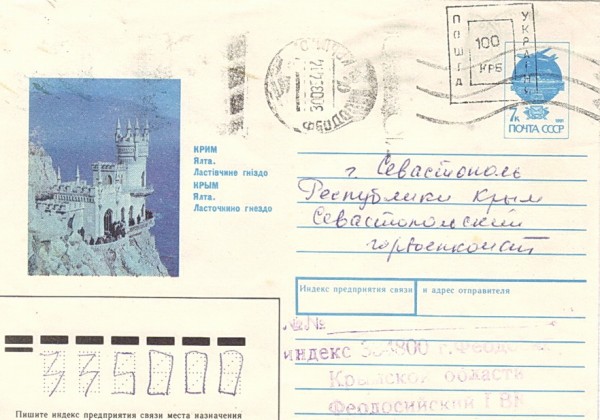 ПОШТА
УКРАЇНА
100
КРБ
7к
1991
ПОЧТА СССР
КРИМ
Ялта.
Ластівчине гніздо
КРЫМ
Ялта.
Ласточкино гнездо
г. Севастополь
Республики Крым
Севастопольский
горвоенкомат
Индекс предприятия связи и адрес отправителя
№№
индекс 334800 г. Феодо
Крымской области
Феодосийский ГВК
335000
Пишите индекс предприятия связи места назначения